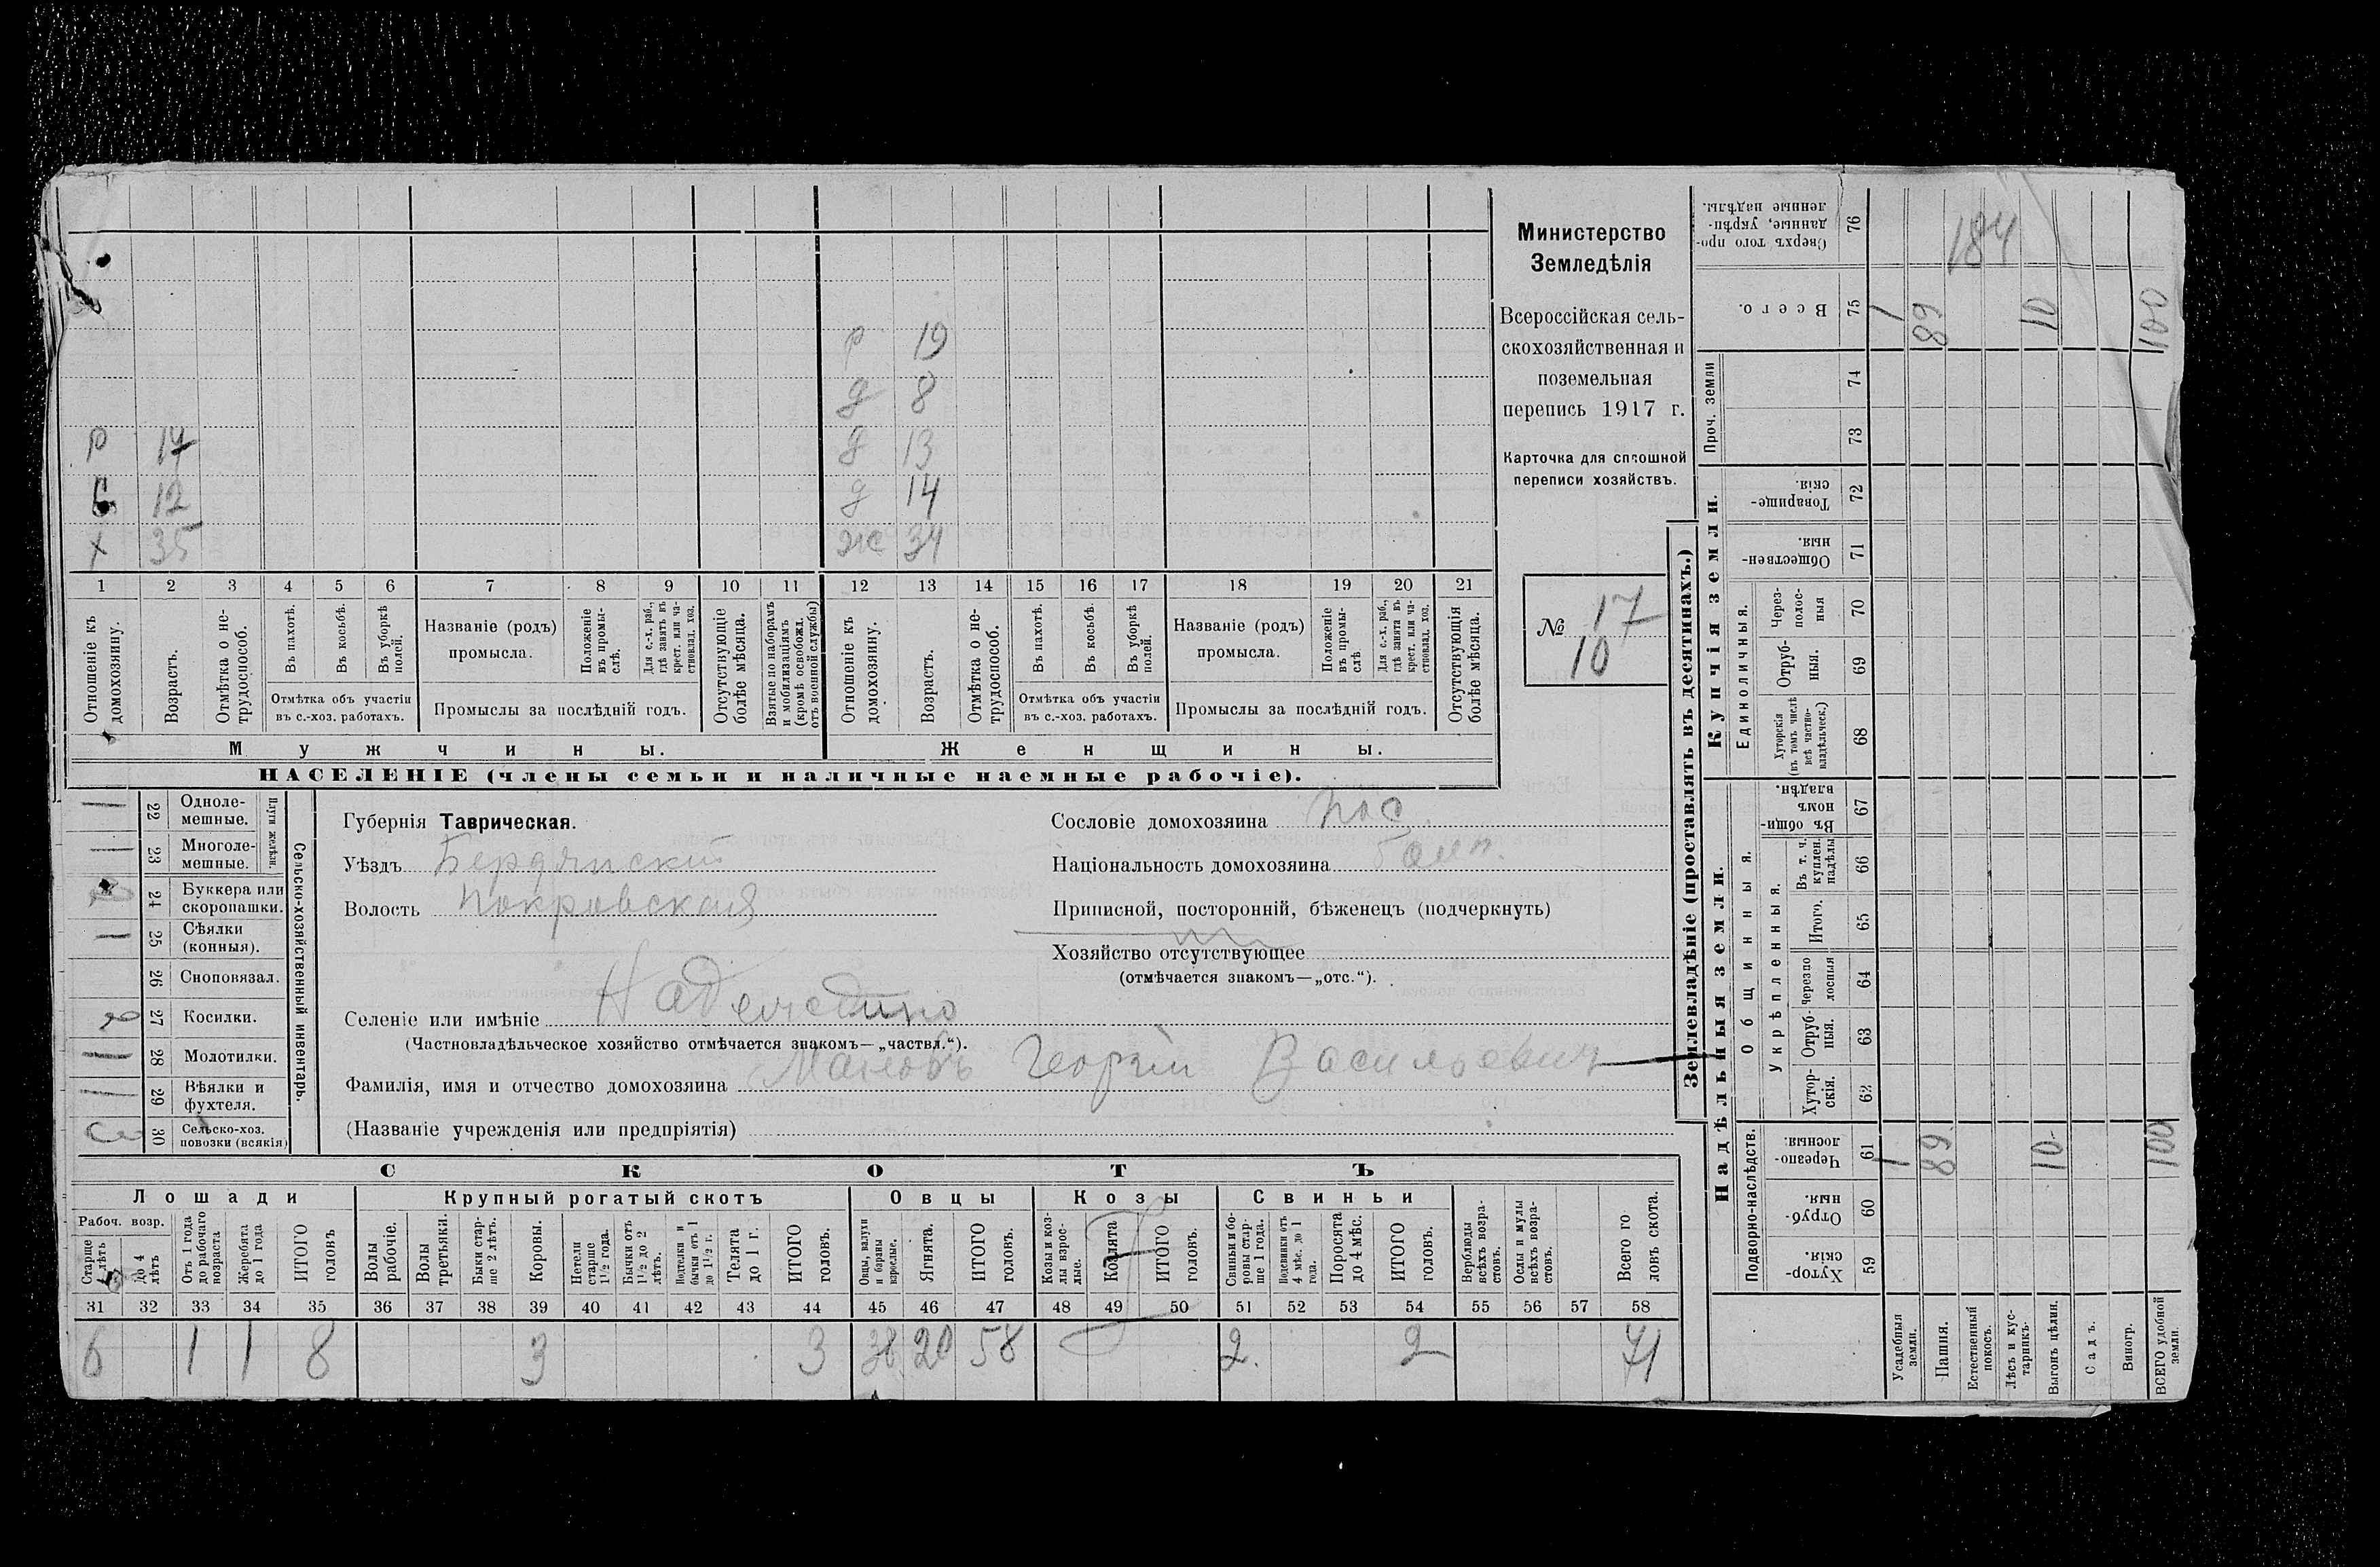 Министерство
Земледѣлія
Всероссійская сель-
скохозяйственная и
поземельная
перепись 1917 г.
Карточка для сплошной
переписи хозяйствъ.
№ 17
10
р 19
д 8
р 17 д 13
12 д 14
х 35 ж 34
1 2 3 4 5 6 7 8 9 10 11 12 13 14 15 16 17 18 19 20 21
Отношеніе къ домохозяину.
Возрастъ.
Отмѣтка о не-трудоспособ.
Въ пахотѣ.
Въ косьбѣ.
Въ уборкѣ полей.
Отмѣтка объ участіи
въ с.-хоз. работахъ.
Названіе (родъ)
промысла.
Положеніе въ промы-слѣ.
Для с.-х. раб., гдѣ занятъ въ крест. или ча-стновлад. хоз.
Промыслы за послѣдній годъ.
Отсутствующіе болѣе мѣсяца.
Взятые по наборамъ и мобилизаціямъ (кромѣ освобожд. отъ военной службы)
Отношеніе къ домохозяину.
Возрастъ.
Отмѣтка о не-трудоспособ.
Въ пахотѣ.
Въ косьбѣ.
Въ уборкѣ полей.
Отмѣтка объ участіи
въ с.-хоз. работахъ.
Названіе (родъ)
промысла.
Положеніе въ промы-слѣ
Для с.-х. раб., гдѣ занята въ крест. или ча-стновлад. хоз.
Промыслы за послѣдній годъ.
Отсутствующія болѣе мѣсяца.
Мужчины.
Женщины.
НАСЕЛЕНІЕ (члены семьи и наличные наемные рабочіе).
Сельско-хозяйственный инвентарь.
Плуги желѣзн.
22 Одноле-мешные.
23 Многоле-мешные.
24 Буккера или скоропашки.
25 Сѣялки (конныя).
26 Сноповязал.
27 Косилки.
28 Молотилки.
29 Вѣялки и фухтеля.
30 Сельско-хоз. повозки (всякія)
Губернія Таврическая.
Уѣздъ Бердянскій
Волость Покровская
Сословіе домохозяина пос.
Національность домохозяина
Приписной, посторонній, бѣженецъ (подчеркнуть)
Хозяйство отсутствующее
(отмѣчается знакомъ—„отс.“).
Селеніе или имѣніе
(Частновладѣльческое хозяйство отмѣчается знакомъ—„частвл.“).
Фамилія, имя и отчество домохозяина Георгій Васильевич
(Названіе учрежденія или предпріятія)
СКОТЪ
Лошади
Крупный рогатый скотъ
Овцы
Козы
Свиньи
Рабоч. возр.
Старше лѣтъ
до 4 лѣтъ
Отъ 1 года до рабочаго возраста
Жеребята до 1 года
ИТОГО головъ
Волы рабочіе.
Волы третьяки.
Быки стар-ше 2 лѣтъ.
Коровы.
Нетели старше 1½ года.
Бычки отъ 1½ до 2 лѣтъ.
Подтелки и бычки отъ 1 до 1½ г.
Телята до 1 г.
ИТОГО головъ.
Овцы, валухи и бараны взрослые.
Ягнята.
ИТОГО головъ.
Козы и коз-лы взрос-лые.
Козлята
ИТОГО головъ.
Свиньи и бо-ровы стар-ше 1 года.
Подсвинки отъ 4 мѣс. до 1 года.
Поросята до 4 мѣс.
ИТОГО головъ.
Верблюды всѣхъ возра-стовъ.
Ослы и мулы всѣхъ возра-стовъ.
Всего го-ловъ скота.
31 32 33 34 35 36 37 38 39 40 41 42 43 44 45 46 47 48 49 50 51 52 53 54 55 56 57 58
6 1 1 8 3 3 38 20 58 2. 2 71
Землевладѣніе (проставлять въ десятинахъ.)
Надѣльныя земли.
Купчія земли.
Проч. земли
Подворно-наслѣдств.
Общинныя.
Укрѣпленныя.
Единоличныя.
Хутор-скія. 59
Отруб-ныя. 60
Черезпо-лосныя. 61
Хутор-скія. 62
Отруб-ныя. 63
Черезпо-лосныя 64
Итого. 65
Въ т. ч. куплен. надѣлы 66
Въ общин-номъ владѣн. 67
Хуторскія (въ томъ числѣ всѣ частно-владѣльческ.) 68
Отруб-ныя. 69
Через-полос-ныя 70
Обществен-ныя. 71
Товарище-скія. 72
73
74
Всего. 75
Сверхъ того про-данные, укрѣп-ленные надѣлы. 76
Усадебныя земли. 1 1
Пашня. 89 89
Естественный покосъ.
Лѣсъ и кус-тарникъ.
Выгонъ цѣлин. 10 10
Садъ.
Виногр.
ВСЕГО удобной земли. 100 100
184